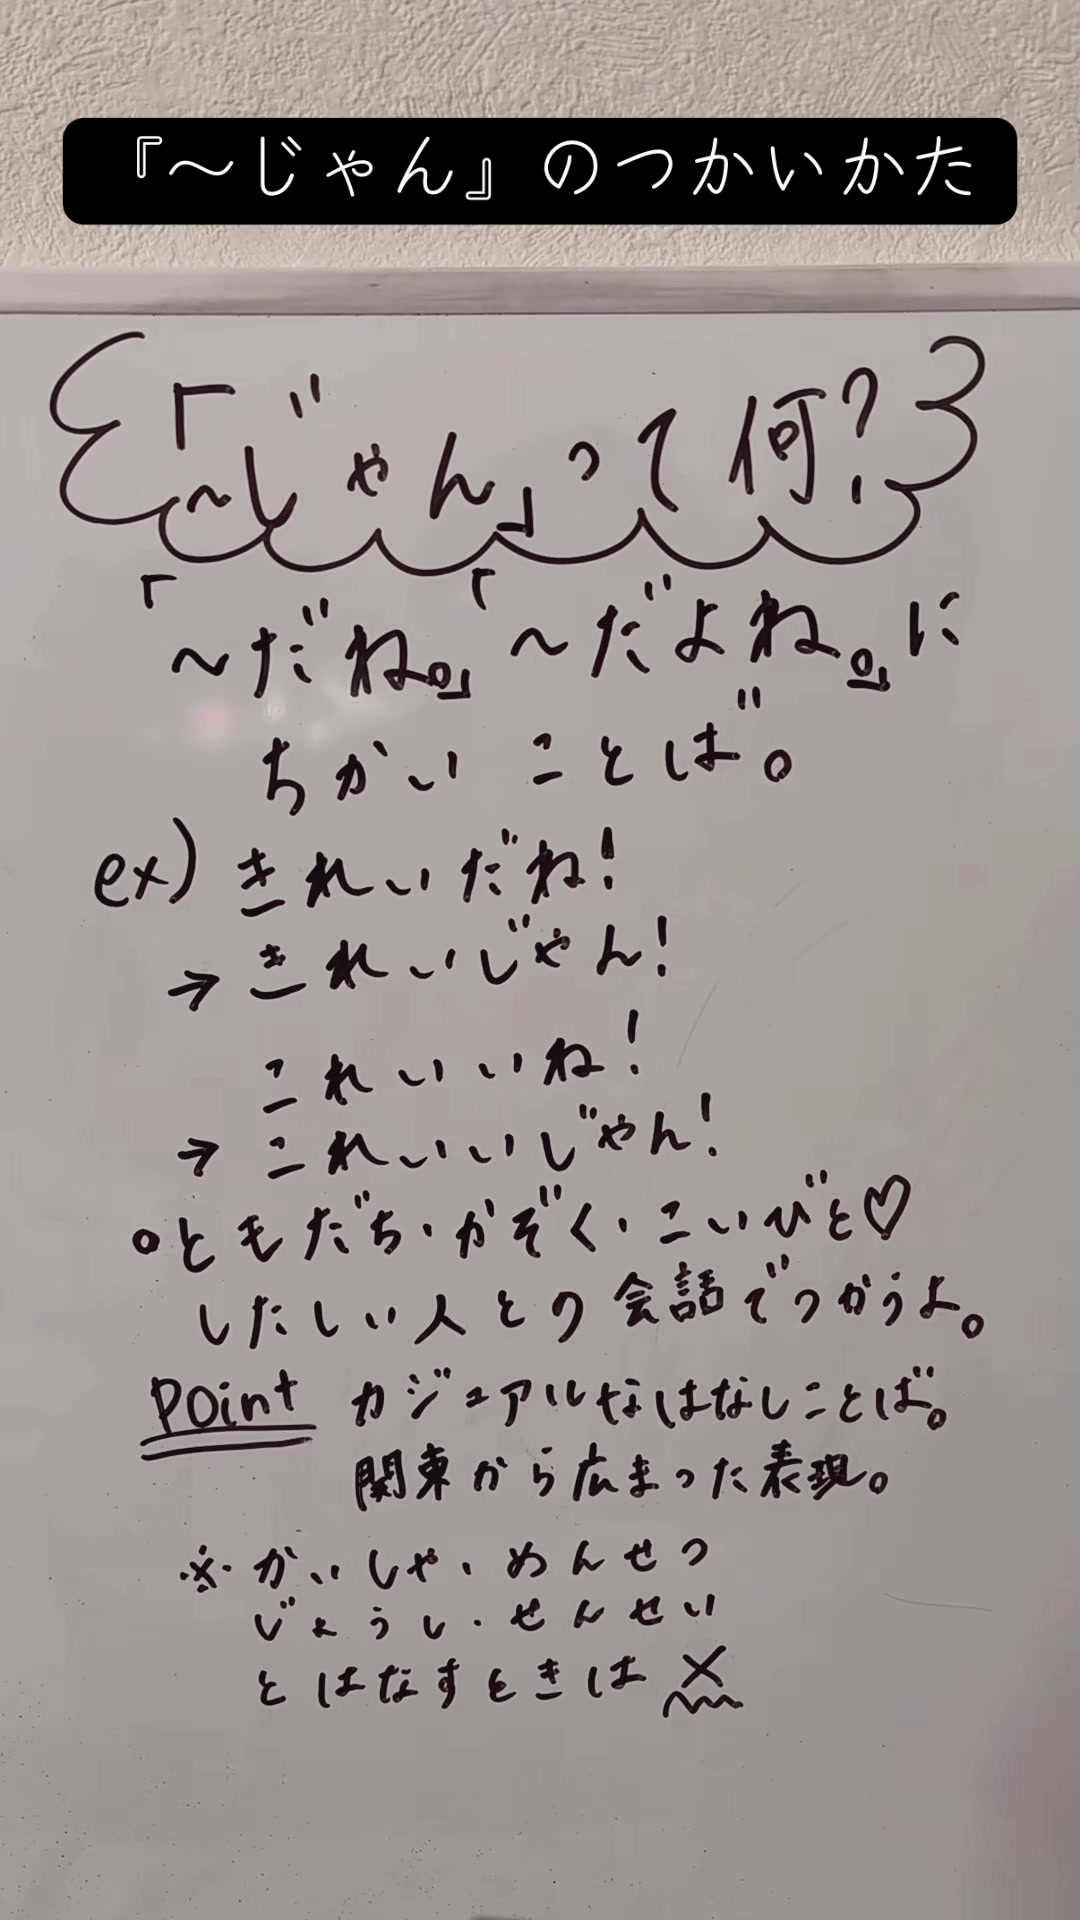 『～じゃん』のつかいかた
「～じゃん」って何?
「～だね。」「～だよね。」に
ちかいことば。
ex) きれいだね!
→ きれいじゃん!
これいいね!
→ これいいじゃん!
○ともだち・かぞく・こいびと♡
したしい人との会話でつかうよ。
Point カジュアルなはなしことば。
関東から広まった表現。
※かいしゃ・めんせつ
じょうし・せんせい
とはなすときは×